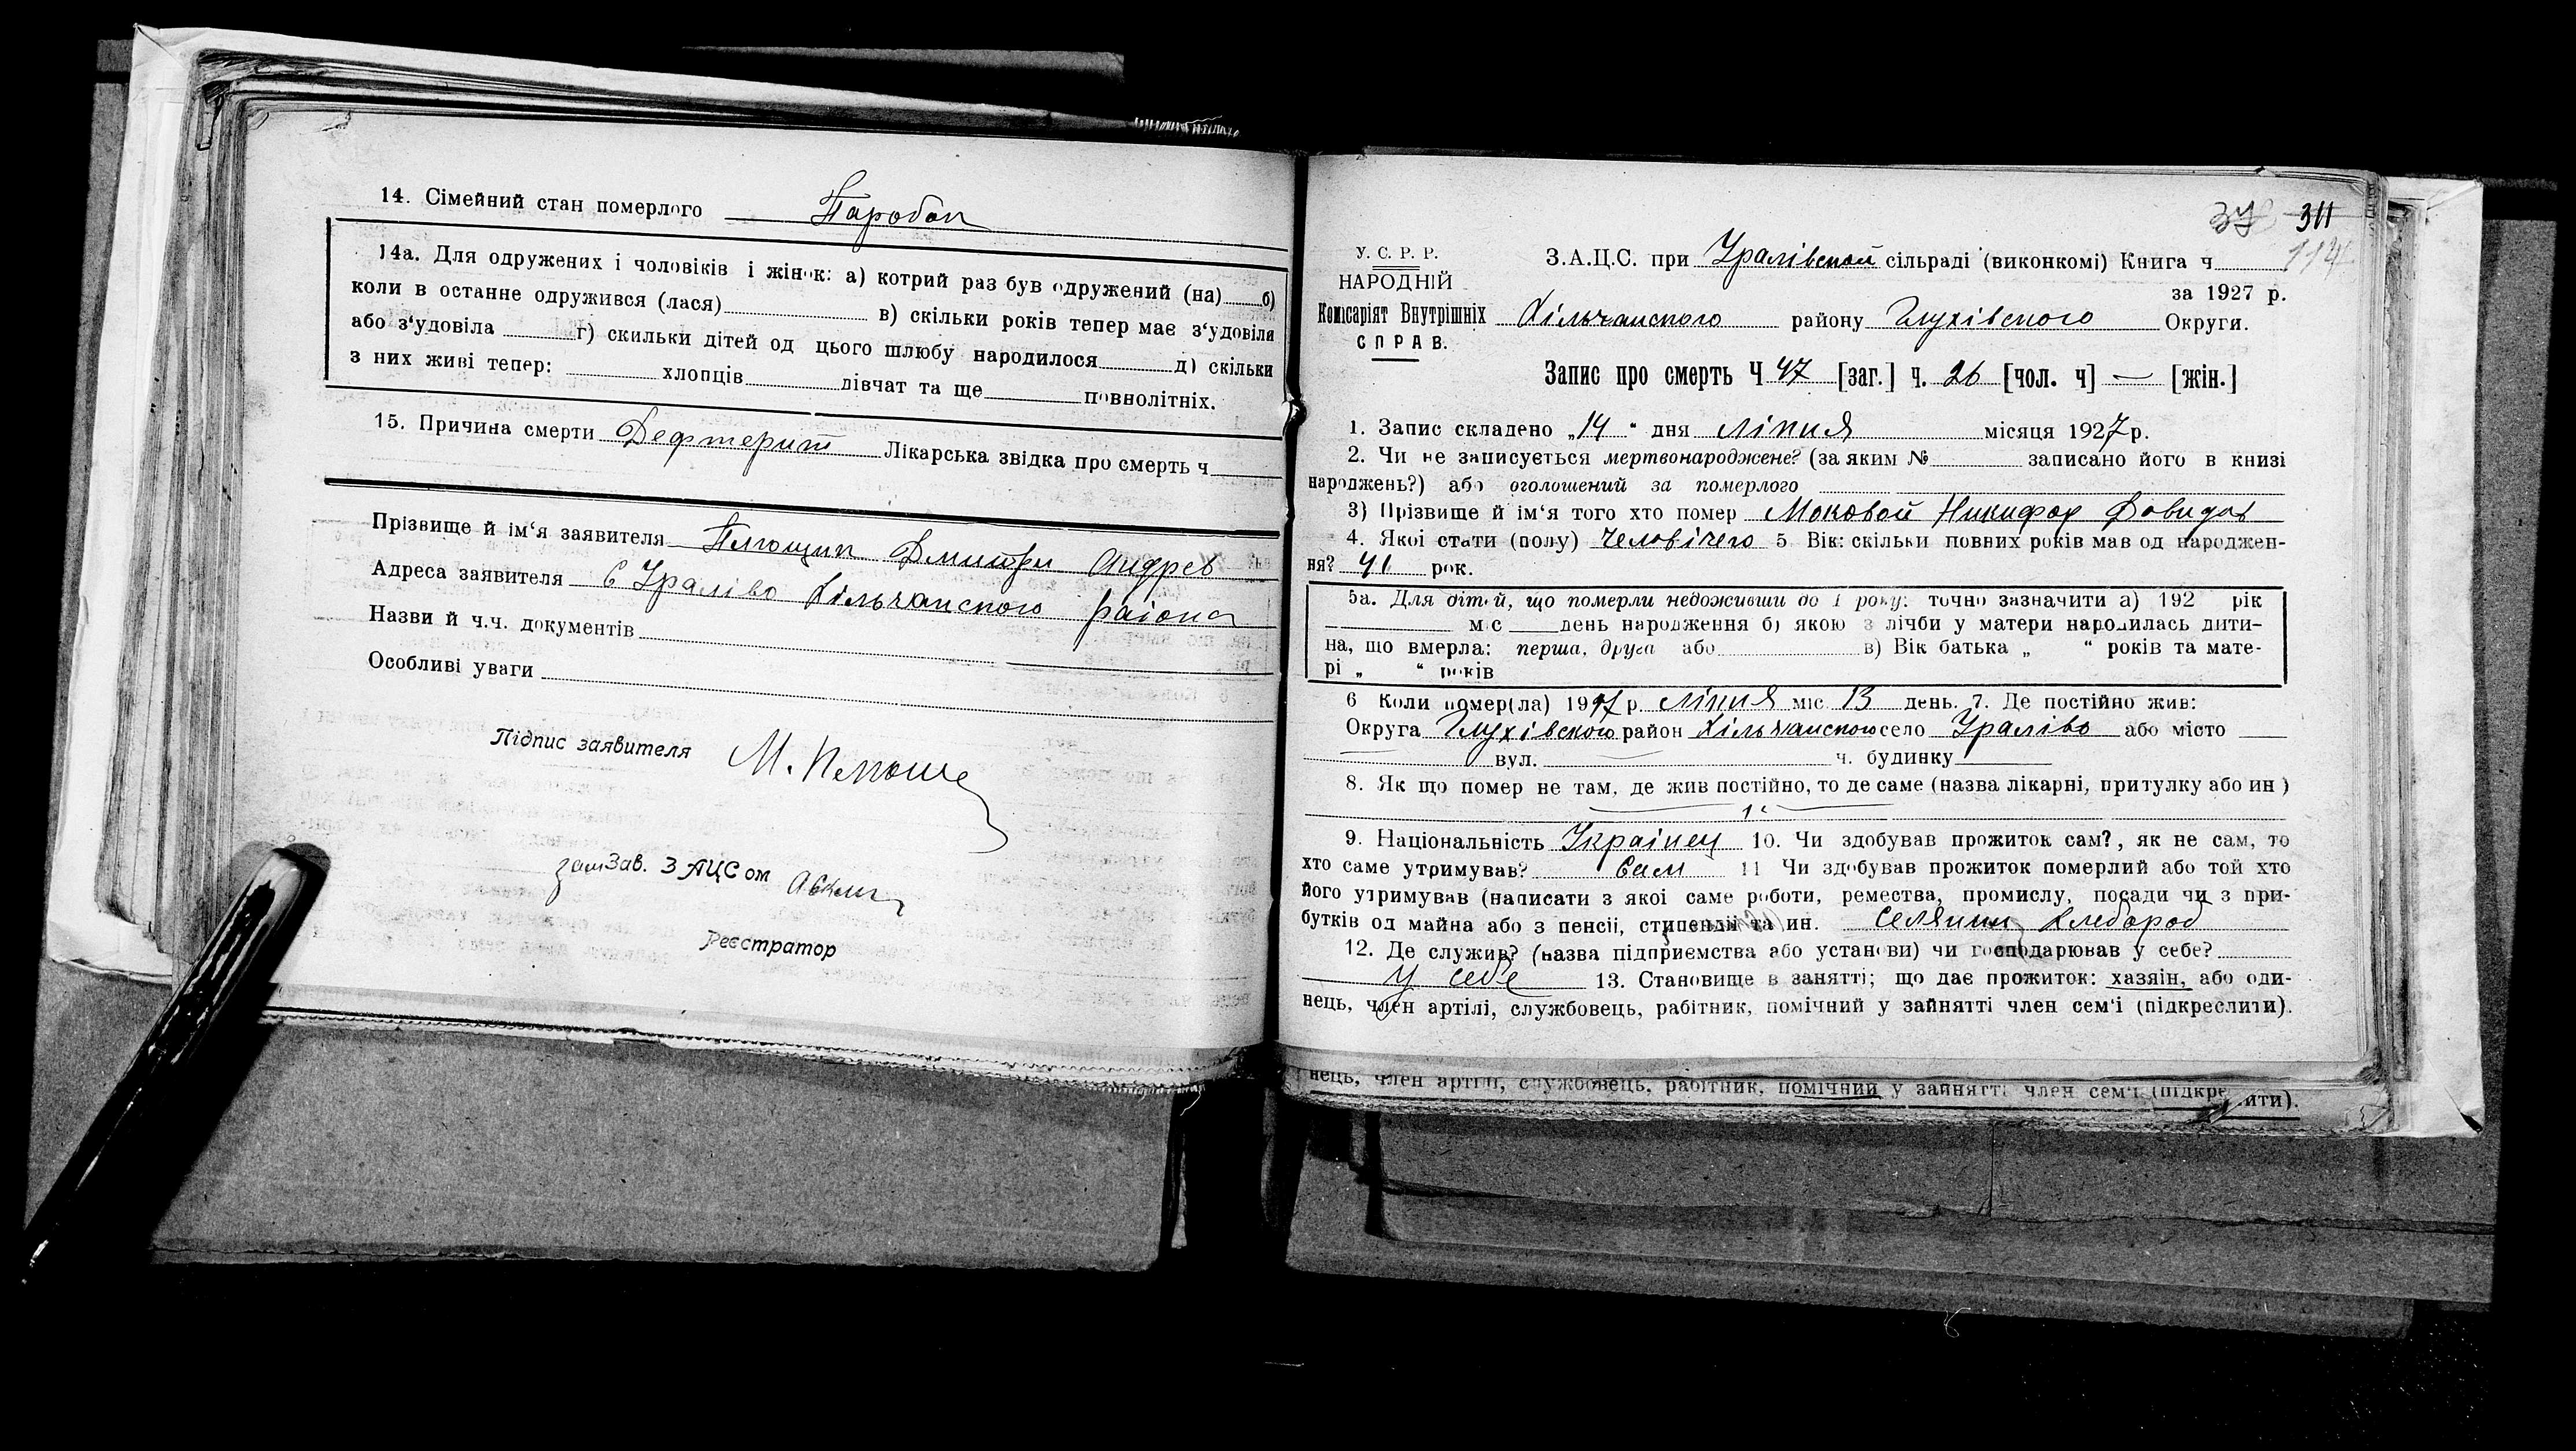 14. Сімейний стан померлого Паробок
14а. Для одружених і чоловіків і жінок: а) котрий раз був одружений (на) б)
коли в останнє одружився (лася) в) скільки років тепер має з‘удовіля
або з‘удовіла г) скильки дітей од цього шлюбу народилося д) скільки
з них живі тепер: хлопців дівчат та ще повнолітніх.
15. Причина смерти Дефтерит Лікарська звідка про смерть ч
Прізвище й ім‘я заявителя Дмитри Андрев
Адреса заявителя с Ураліво Хільчанского раіона
Назви й ч.ч. документів
Особливі уваги
Підпис заявителя М.
зам Зав. ЗАЦСом
Реєстратор
311
114
У. С. Р. Р.
НАРОДНІЙ
Комісаріят Внутрішніх
СПРАВ.
З.А.Ц.С. при Уралівской сільраді (виконкомі) Книга ч
за 1927 р.
Хільчанского району Глухівского Округи.
Запис про смерть Ч 47 [заг.] ч. 26 [чол. ч] — [жін.]
1. Запис складено „14“ дня Ліпня місяця 1927 р.
2. Чи не записується мертвонароджене? (за яким № записано його в книзі
народжень?) або оголошений за померлого
3) Прізвище й ім‘я того хто помер Моковой Никифор Довидов
4. Якоі стати (полу) Человічего 5 Вік: скільки повних років мав од народжен-
ня? 41 рок.
5а. Для дітей, що померли недоживши до 1 року: точно зазначити а) 192 рік
міс день народження б) якою з лічби у матери народилась дити-
на, що вмерла: перша, друга або в) Вік батька „ “ років та мате-
рі „ “ років
6 Коли помер(ла) 1927 р. Ліпня міс 13 день. 7. Де постійно жив:
Округа Глухівского район Хільчанского село Ураліво або місто
вул. ч. будинку
8. Як що помер не там, де жив постійно, то де саме (назва лікарні, притулку або ин )
9. Національність Украінец 10. Чи здобував прожиток сам?, як не сам, то
хто саме утримував? Сам 11 Чи здобував прожиток померлий або той хто
його утримував (написати з якоі саме роботи, ремества, промислу, посади чи з при-
бутків од майна або з пенсіі, стипендіі та ин. Селянин хлебороб
12. Де служив? (назва підприємства або установи) чи господарював у себе?
У себе 13. Становище в занятті; що дає прожиток: хазяін, або оди-
нець, член артілі, службовець, рабітник, помічний у зайнятті член сем‘і (підкреслити).
нець, член артілі, службовець, рабітник, помічний у зайнятті член сем‘і (підкре ити).